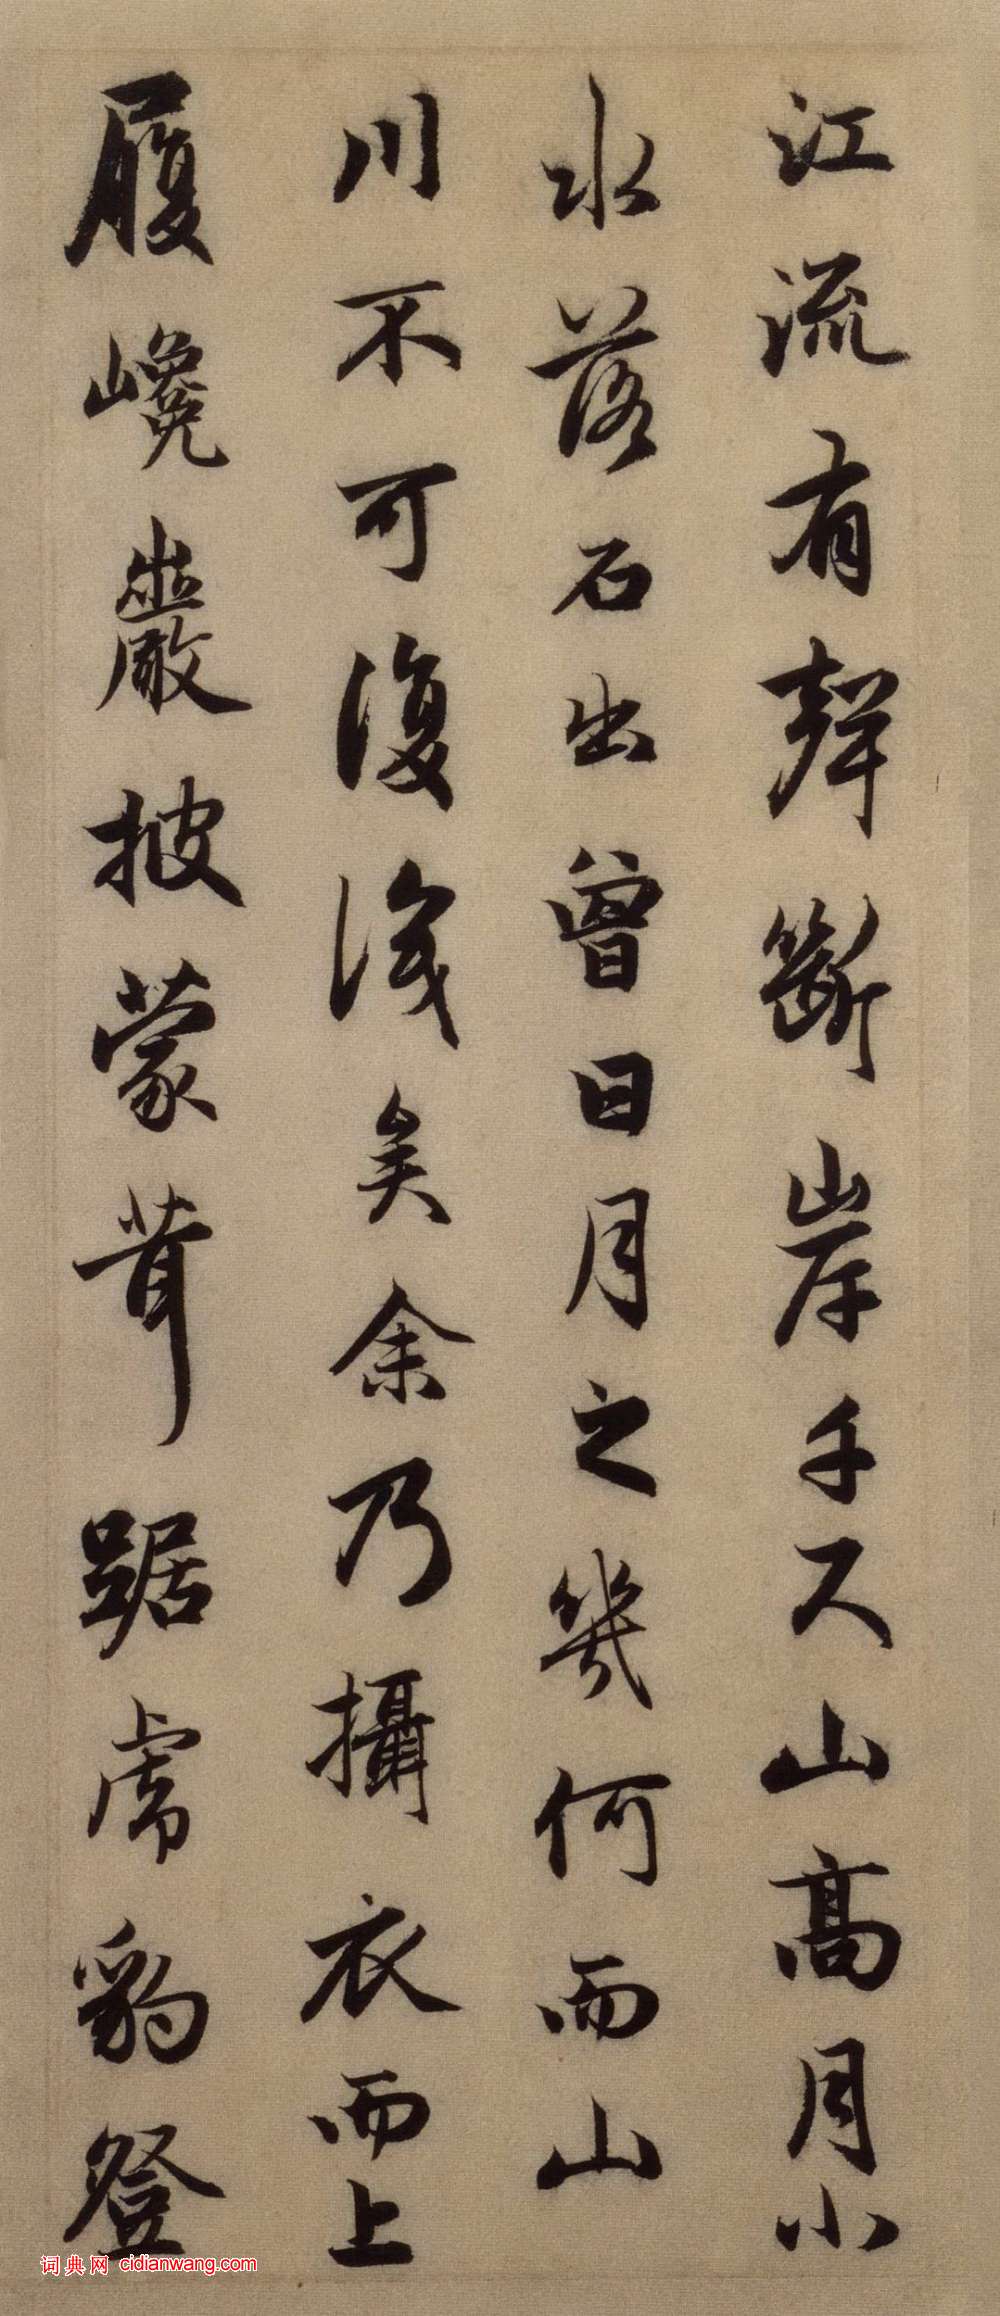 江流有聲斷岸千尺山高月小
水落石出曾日月之幾何而山
川不可復識矣余乃攝衣而上
履巉巖披蒙茸踞虎豹登
词典网 cidianwang.com